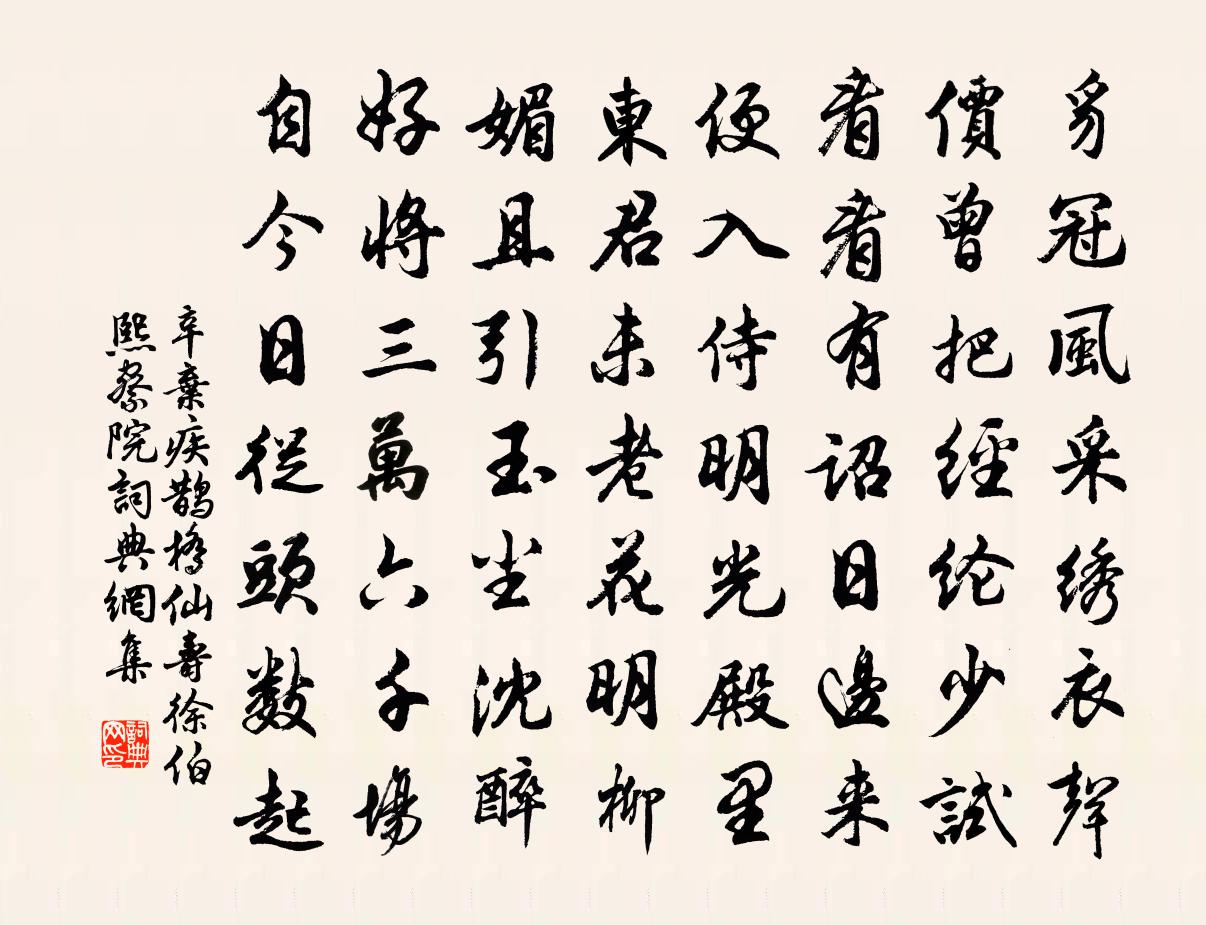 豸冠風采绣衣聲
價曾把經纶少試
看看有詔日邊来
便入侍明光殿里
東君未老花明柳
媚且引玉尘沈醉
好將三萬六千場
自今日從頭數起
辛棄疾鵲橋仙壽徐伯
熙察院詞典網集